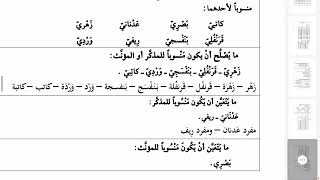 منسوباً لأحدهما:
كاتبيّ بَصْرِيّ عَدْنانيّ زَهْرِيّ
قَرَنْفُلِيّ بَنَفْسجيّ ريفيّ وَرْدِيّ
ما يَصْلُح أنْ يكون مَنْسوباً للمذكَّر أو المؤنَّث:
زَهْرِيّ – قَرَنْفُلِيّ – بَنَفْسَجيّ – وَرْدِيّ – كاتبيّ.
زَهَر – زَهَرَة – قرنفل – قَرنفلة – بَنَفْسَج – بَنفسجة – وَرْد – وَرْدَة – كاتب – كاتبة
ما يَتَعَيَّن أن يَكُون مَنْسُوباً للمذكَّر:
عَدْنَانيّ – ريفي.
مفرد عَدنان – ومفرد رِيف
ما يَتَعَيَّن أن يَكون مَنْسُوباً للمؤنَّث:
بَصْرِي.